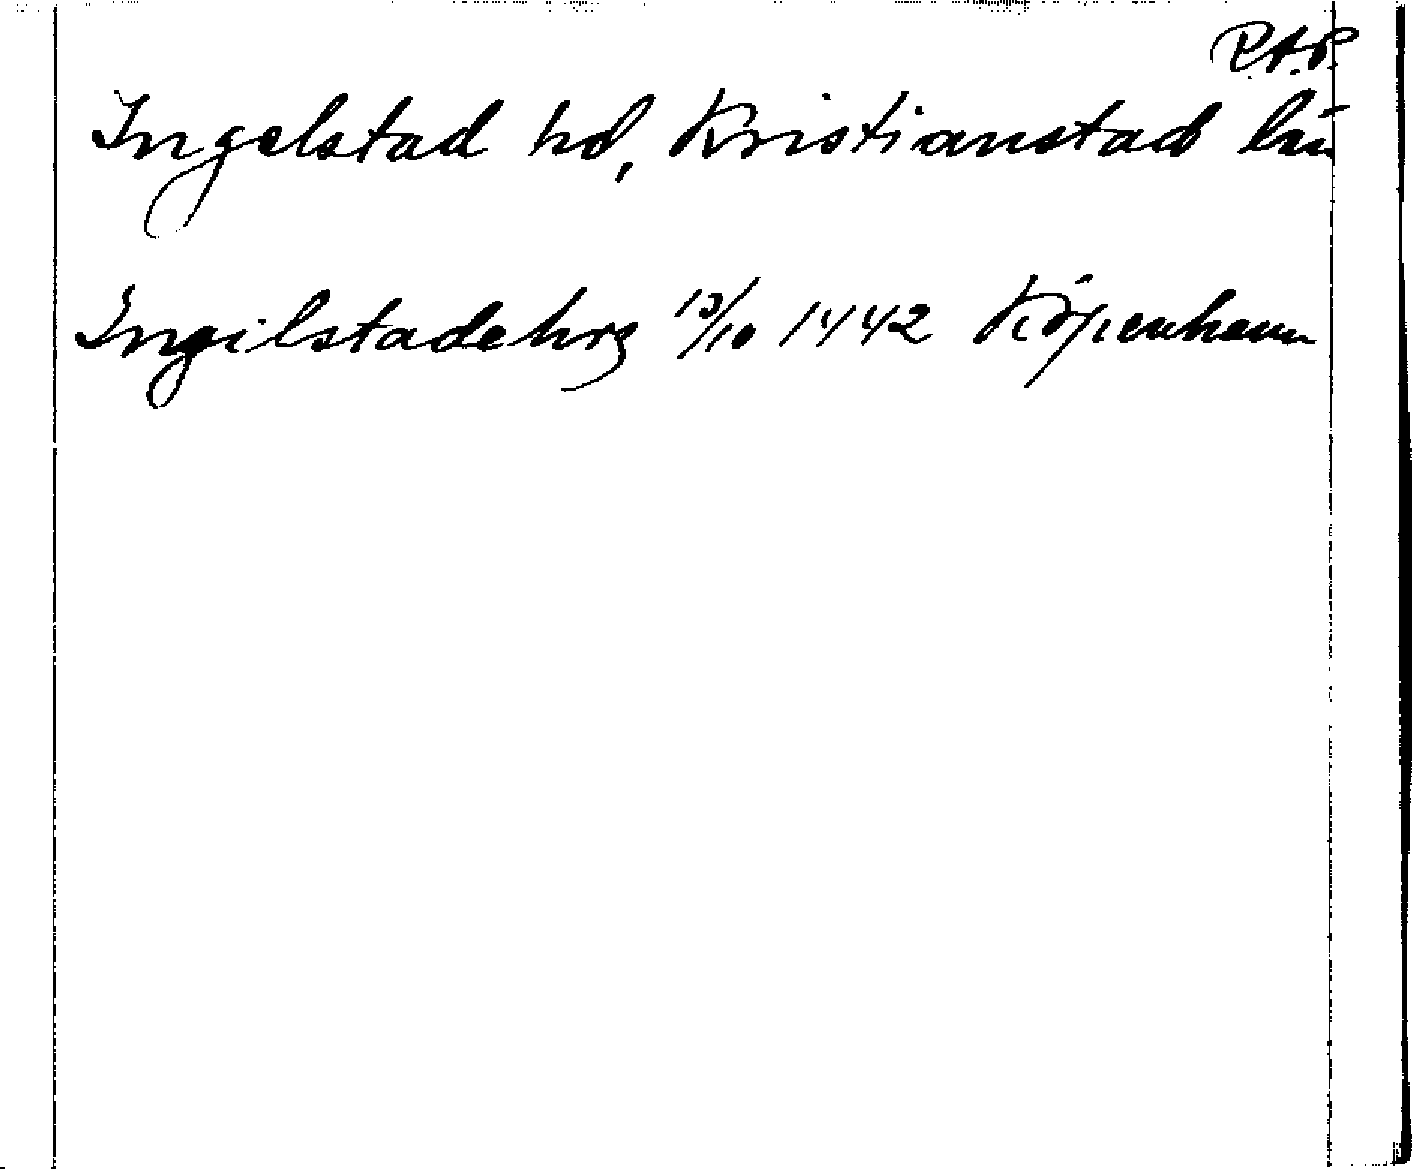 R.A.P.
Ingelstad hd, Kristianstad län
Ingilstadehrz 13/10 1442 Köpenhamn